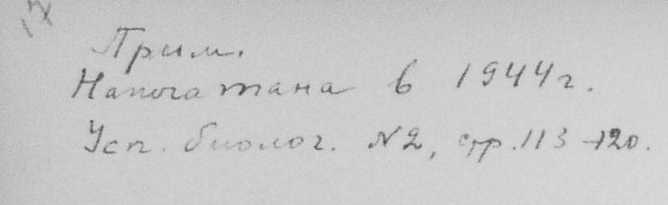 17
Прим.
Напечатана в 1944 г.
Усп. биолог. №2, стр. 113-120.